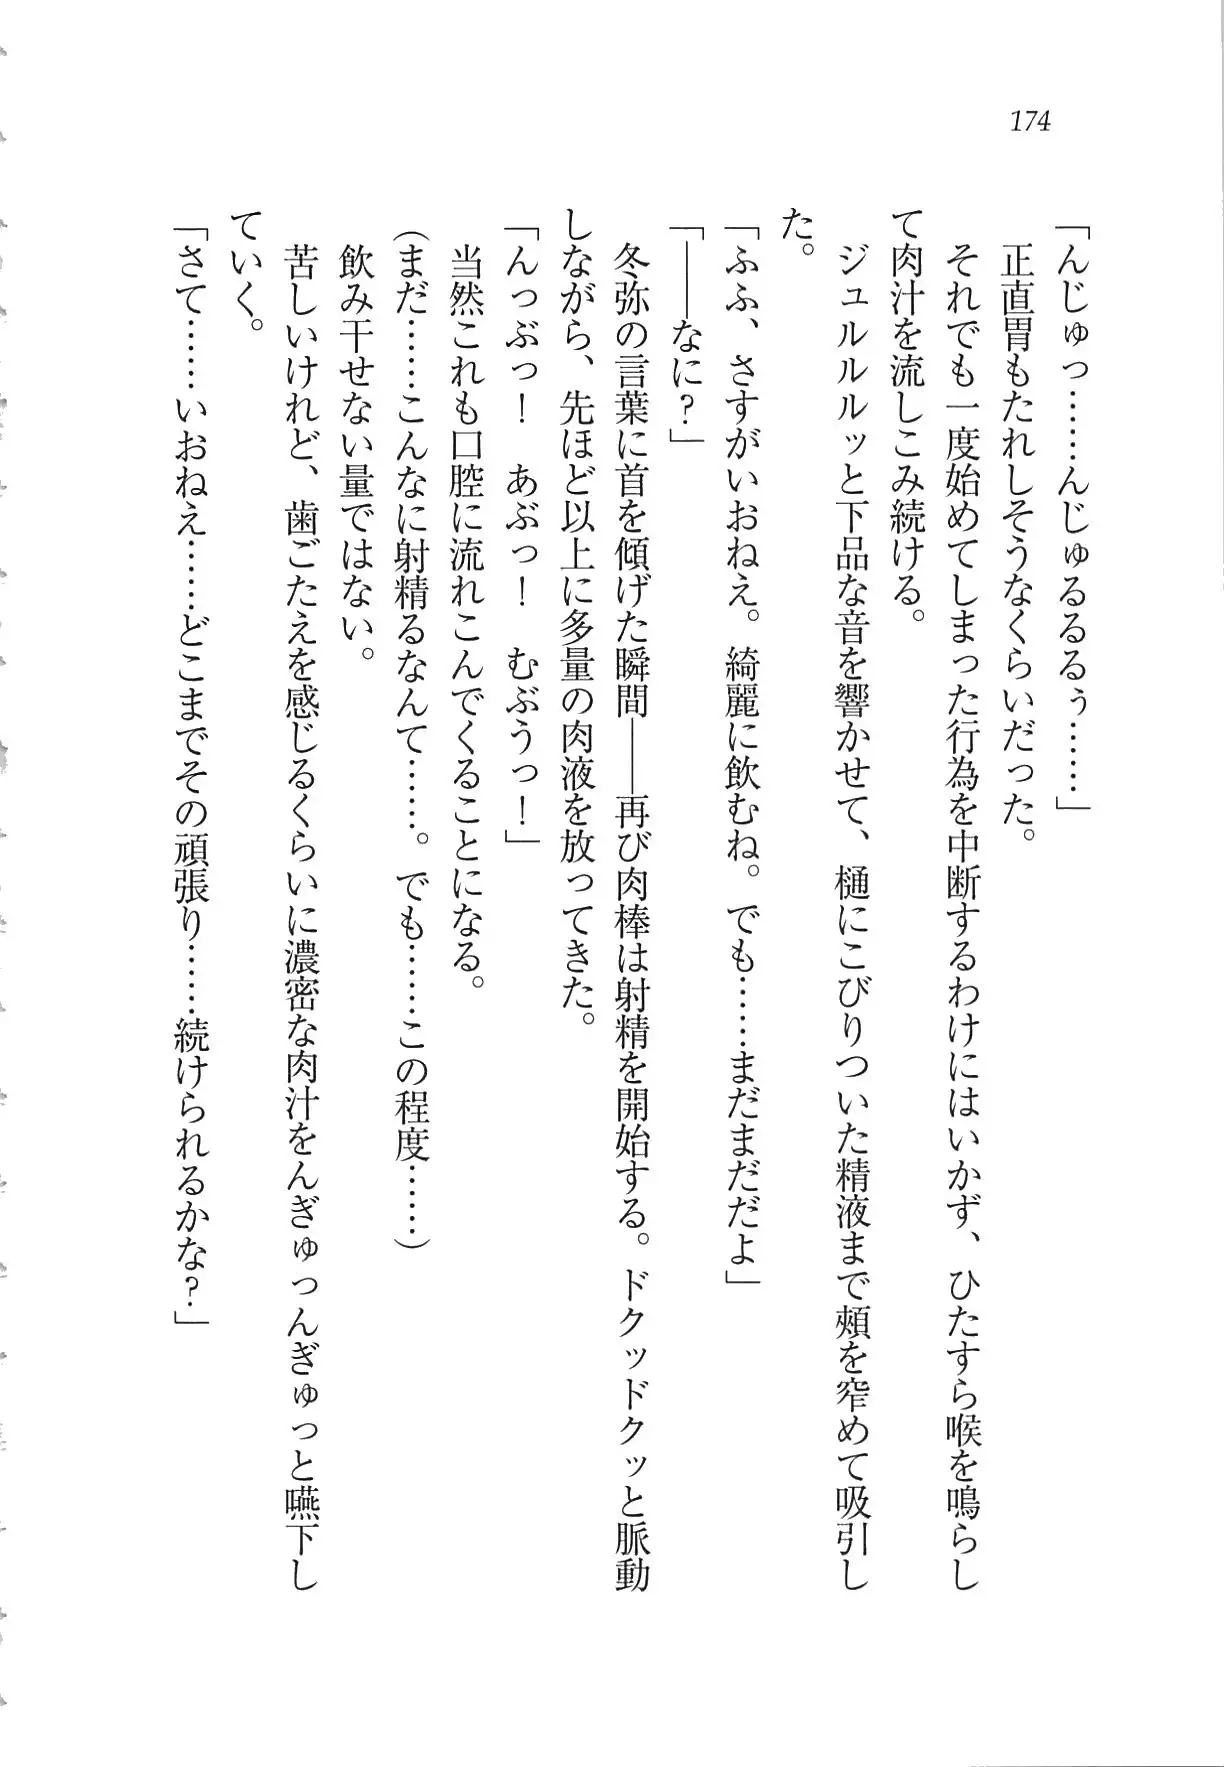 174
「んじゅっ……んじゅるるるぅ……」
正直胃もたれしそうなくらいだった。
それでも一度始めてしまった行為を中断するわけにはいかず、ひたすら喉を鳴らし
て肉汁を流しこみ続ける。
ジュルルルッと下品な音を響かせて、樋にこびりついた精液まで頰を窄めて吸引し
た。
「ふふ、さすがいおねえ。綺麗に飲むね。でも……まだまだだよ」
「――なに？」
冬弥の言葉に首を傾げた瞬間――再び肉棒は射精を開始する。ドクッドクッと脈動
しながら、先ほど以上に多量の肉液を放ってきた。
「んっぶっ！　あぶっ！　むぶうっ！」
当然これも口腔に流れこんでくることになる。
（まだ……こんなに射精るなんて……。でも……この程度……）
飲み干せない量ではない。
苦しいけれど、歯ごたえを感じるくらいに濃密な肉汁をんぎゅっんぎゅっと嚥下し
ていく。
「さて……いおねえ……どこまでその頑張り……続けられるかな？」